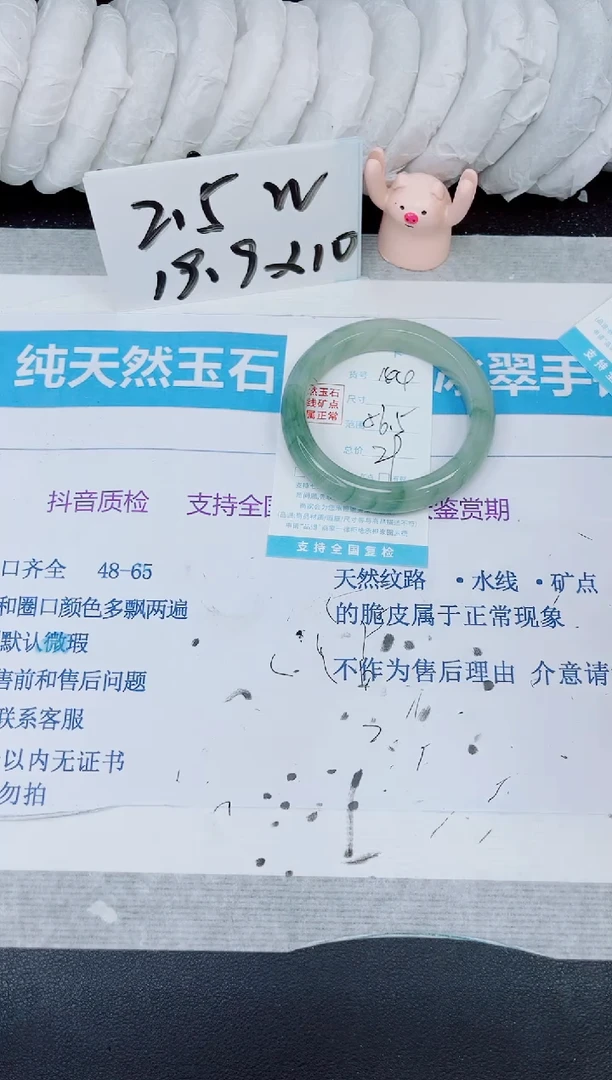 2.5 W
13.9×10
纯天然玉石
翠手
货号
尺寸
56.5
总价
然玉石
线矿点
属正常
支持全国复检
抖音质检 支持全国
鉴赏期
口齐全 48-65
和圈口颜色多飘两遍
默认微瑕
售前和售后问题
联系客服
以内无证书
勿拍
天然纹路 ·水线 ·矿点
的脆皮属于正常现象
不作为售后理由 介意请